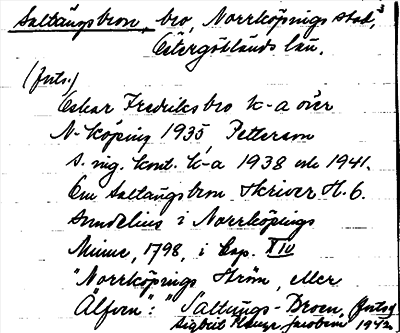 Saltängsbron, bro, Norrköpings stad,
Östergötlands län.
(forts.)
Oskar Fredriksbro k-a över
N-köping 1935, Petterson
s. mg. kont. k-a 1938 och 1941.
Om Saltängsbron skriver H. O.
Sundelius i Norrköpings
Minne, 1798, i Cap. XIV
"Norrköpings Ström, eller
Älfven": "Saltängs-Broen, (forts.)
Sigbrit Jacobson 1942